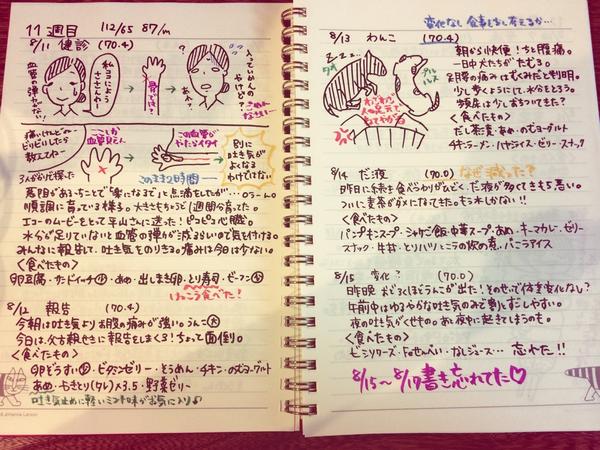 11週目　112/65　87/m
8/11 健診　(70.4)
血管の弾力がない!
私ヨコになよう
ささんやー
骨では?
あれ?
入っていかんの
やけど…?
痛いけどピーッ
ビリビリしたら
教えてねー
ここしか
血管見えん
この血管が
やたらイタイ
このまま2時間
別に
吐き気が
よくなる
わけではない
3人がかりで探った
悪阻があまってことで"楽になるまで"と点滴をしたが…0ラーの
順調に育っている様子。大きさもちょうど1週間分育ってた。
エコーのムービーをとって平山さんに送った!ピコピコ心臓。
水分が足りていないと血管の弾力が減るらしいので気を付ける。
みんなに報告して、吐き気をのりきる。痛みは今は少ない。
<食べたもの>
卵豆腐・サンドイーチ小・あめ・出しまき卵・とり寿司・ビーフン小
けっこう食べた!
8/12 報告　(70.4)
今朝は吐き気よりお股の痛みが強い。うんこ大
今日は、父方親せきに報告をしまくる!ちょって面倒。
<食べたもの>
卵どうすい・ビタンゼリー・とうめん・チキン・のむヨーグルト
あめ・もきとり(タレ)×3.5・野菜ゼリー
吐き気止めに軽いミント味がお気に入り♪
変化なし 食事を少し考えるか…
8/13 わんこ　(70.2)
Zzz…
朝から快便!ちと腹痛。
一日中犬たちがたむろ。
お股の痛みはむくみだと判明。
少し歩くようにして、水分をとろう。
頻尿は少しおちついてきた?
<食べたもの>
だし茶漬・あめ・のむヨーグルト
チキンラーメン・ハヤシライス・ゼリー・スナック
8/14 だ液　(70.0) なぜ減った?
昨日に続き食べつわりがひどく、だ液が多くてきもち悪い。
ついに麦茶がダメになってきた。もう水しかない!!
<食べたもの>
パンプキンスープ・シャケご飯・中華スープ・あめ・キーマカレー・ゼリー
スナック・牛丼・とりハツとニラの炊の煮・バニラアイス
8/15 変化?　(70.0)
昨晩おどろくほうんこが出た!そのせいで体重変化なし?
午前中はゆるやかな吐き気のみで割とすごしやすい。
夜の吐き気がくせもの。あと夜中に起きてしまうのも。
<食べたもの>
ビシソワーズ・Feせんべい・なしジュース… 忘れた!!
8/15〜8/17書き忘れてた♡